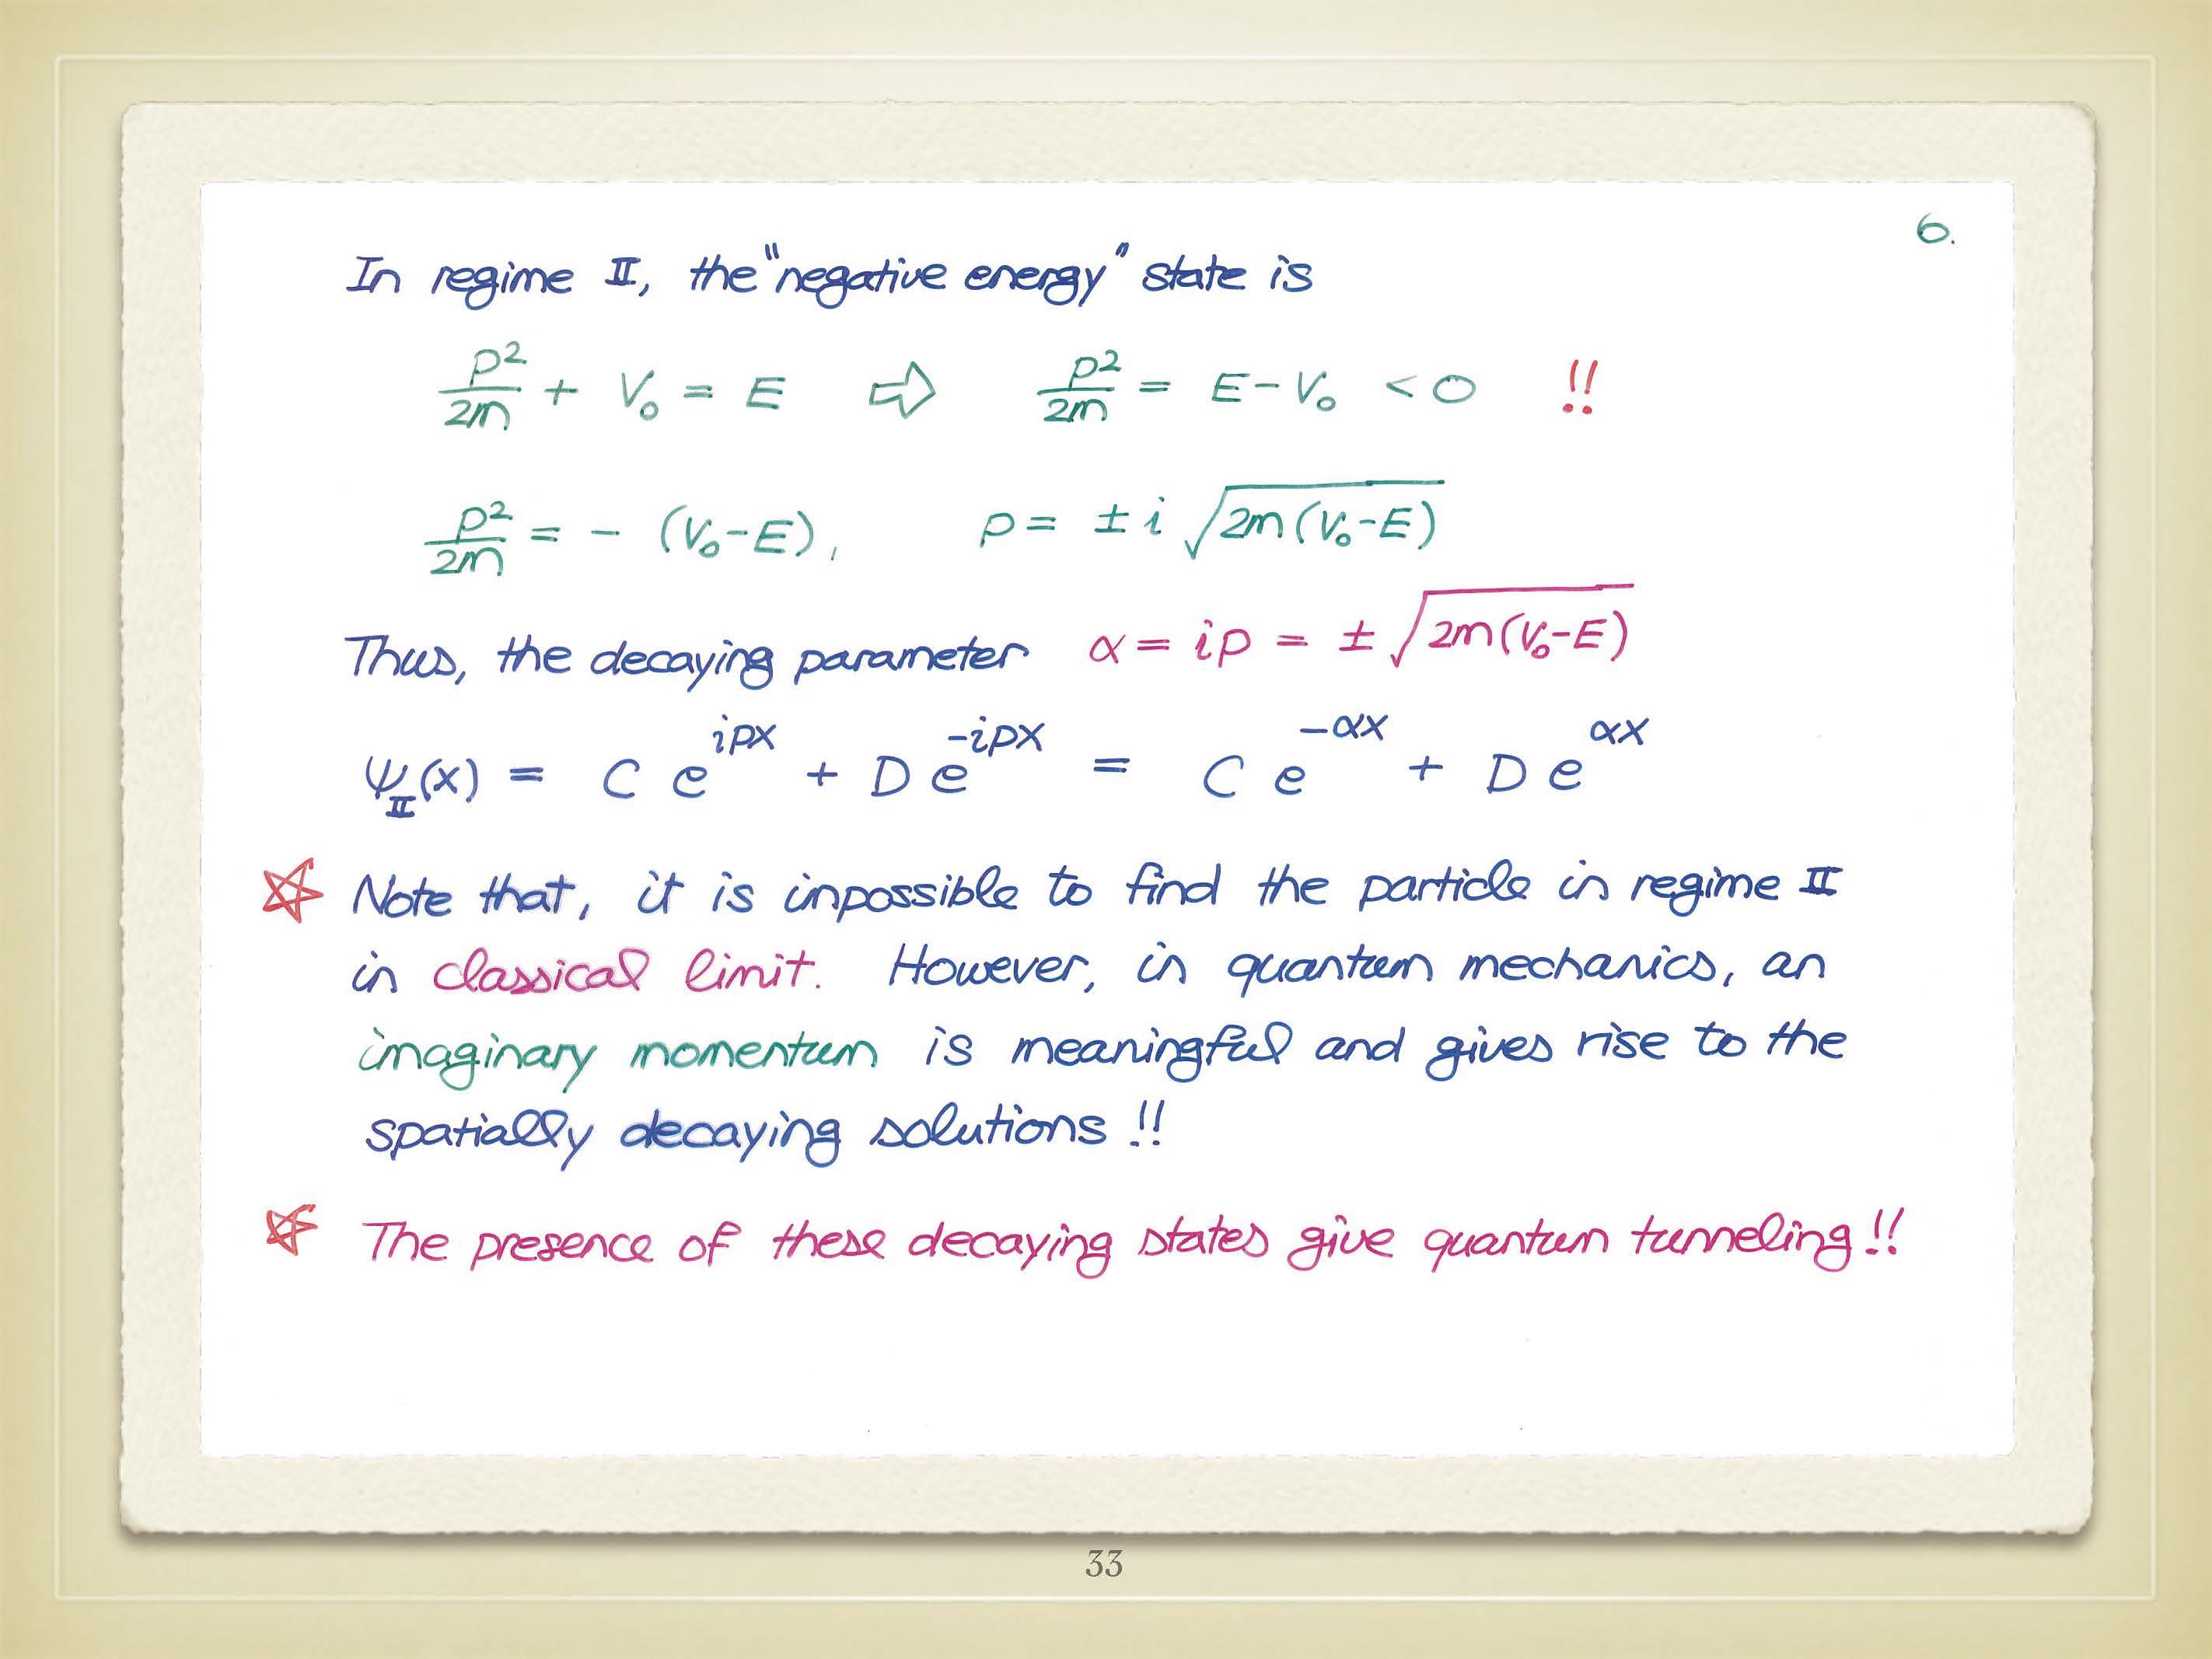 6.
In regime II, the "negative energy" state is
p²/2m + V₀ = E ⇨ p²/2m = E - V₀ < 0 !!
p²/2m = - (V₀-E), p = ± i √2m(V₀-E)
Thus, the decaying parameter α = ip = ± √2m(V₀-E)
Ψ_II(x) = C e^{ipx} + D e^{-ipx} = C e^{-αx} + D e^{αx}
☆ Note that, it is inpossible to find the particle in regime II
in classical limit. However, in quantum mechanics, an
imaginary momentum is meaningful and gives rise to the
spatially decaying solutions !!
☆ The presence of these decaying states give quantum tunneling !!
33